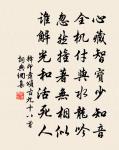 心藏智寶少知音
全机仔與水龍吟
忽然撞著無相似
誰解光和活死人
釋印肅頌古九十八首
詞典網集